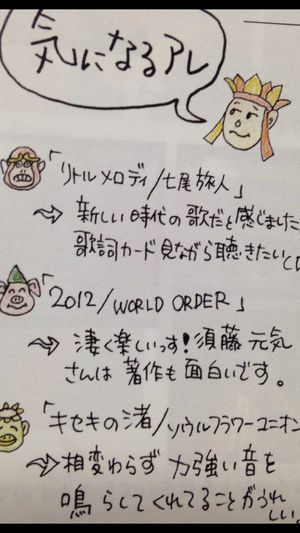 気になるアレ
「リトルメロディ/七尾旅人」
⇒ 新しい時代の歌だと感じました
歌詞カード見ながら聴きたいCD
「2012/WORLD ORDER」
⇒ 凄く楽しいっす!須藤元気
さんは著作も面白いです。
「キセキの渚/ソウルフラワーユニオン
⇒ 相変わらず力強い音を
鳴らしてくれてることがうれ
しい。